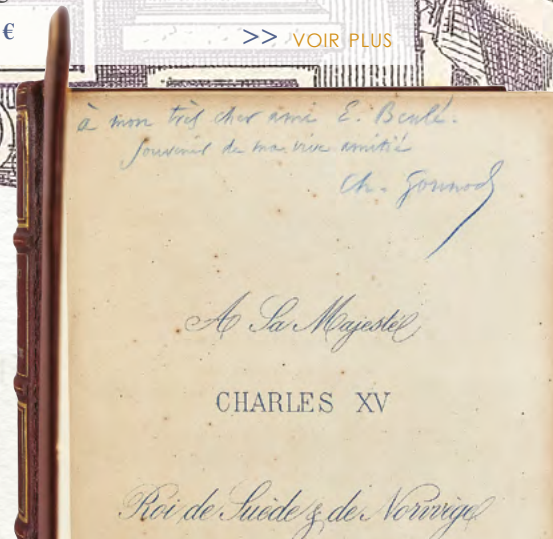 €
>> VOIR PLUS
à mon très cher ami E. Beulé.
souvenir de ma vive amitié
Ch. Gounod
A Sa Majesté
CHARLES XV
Roi de Suède & de Norvvège